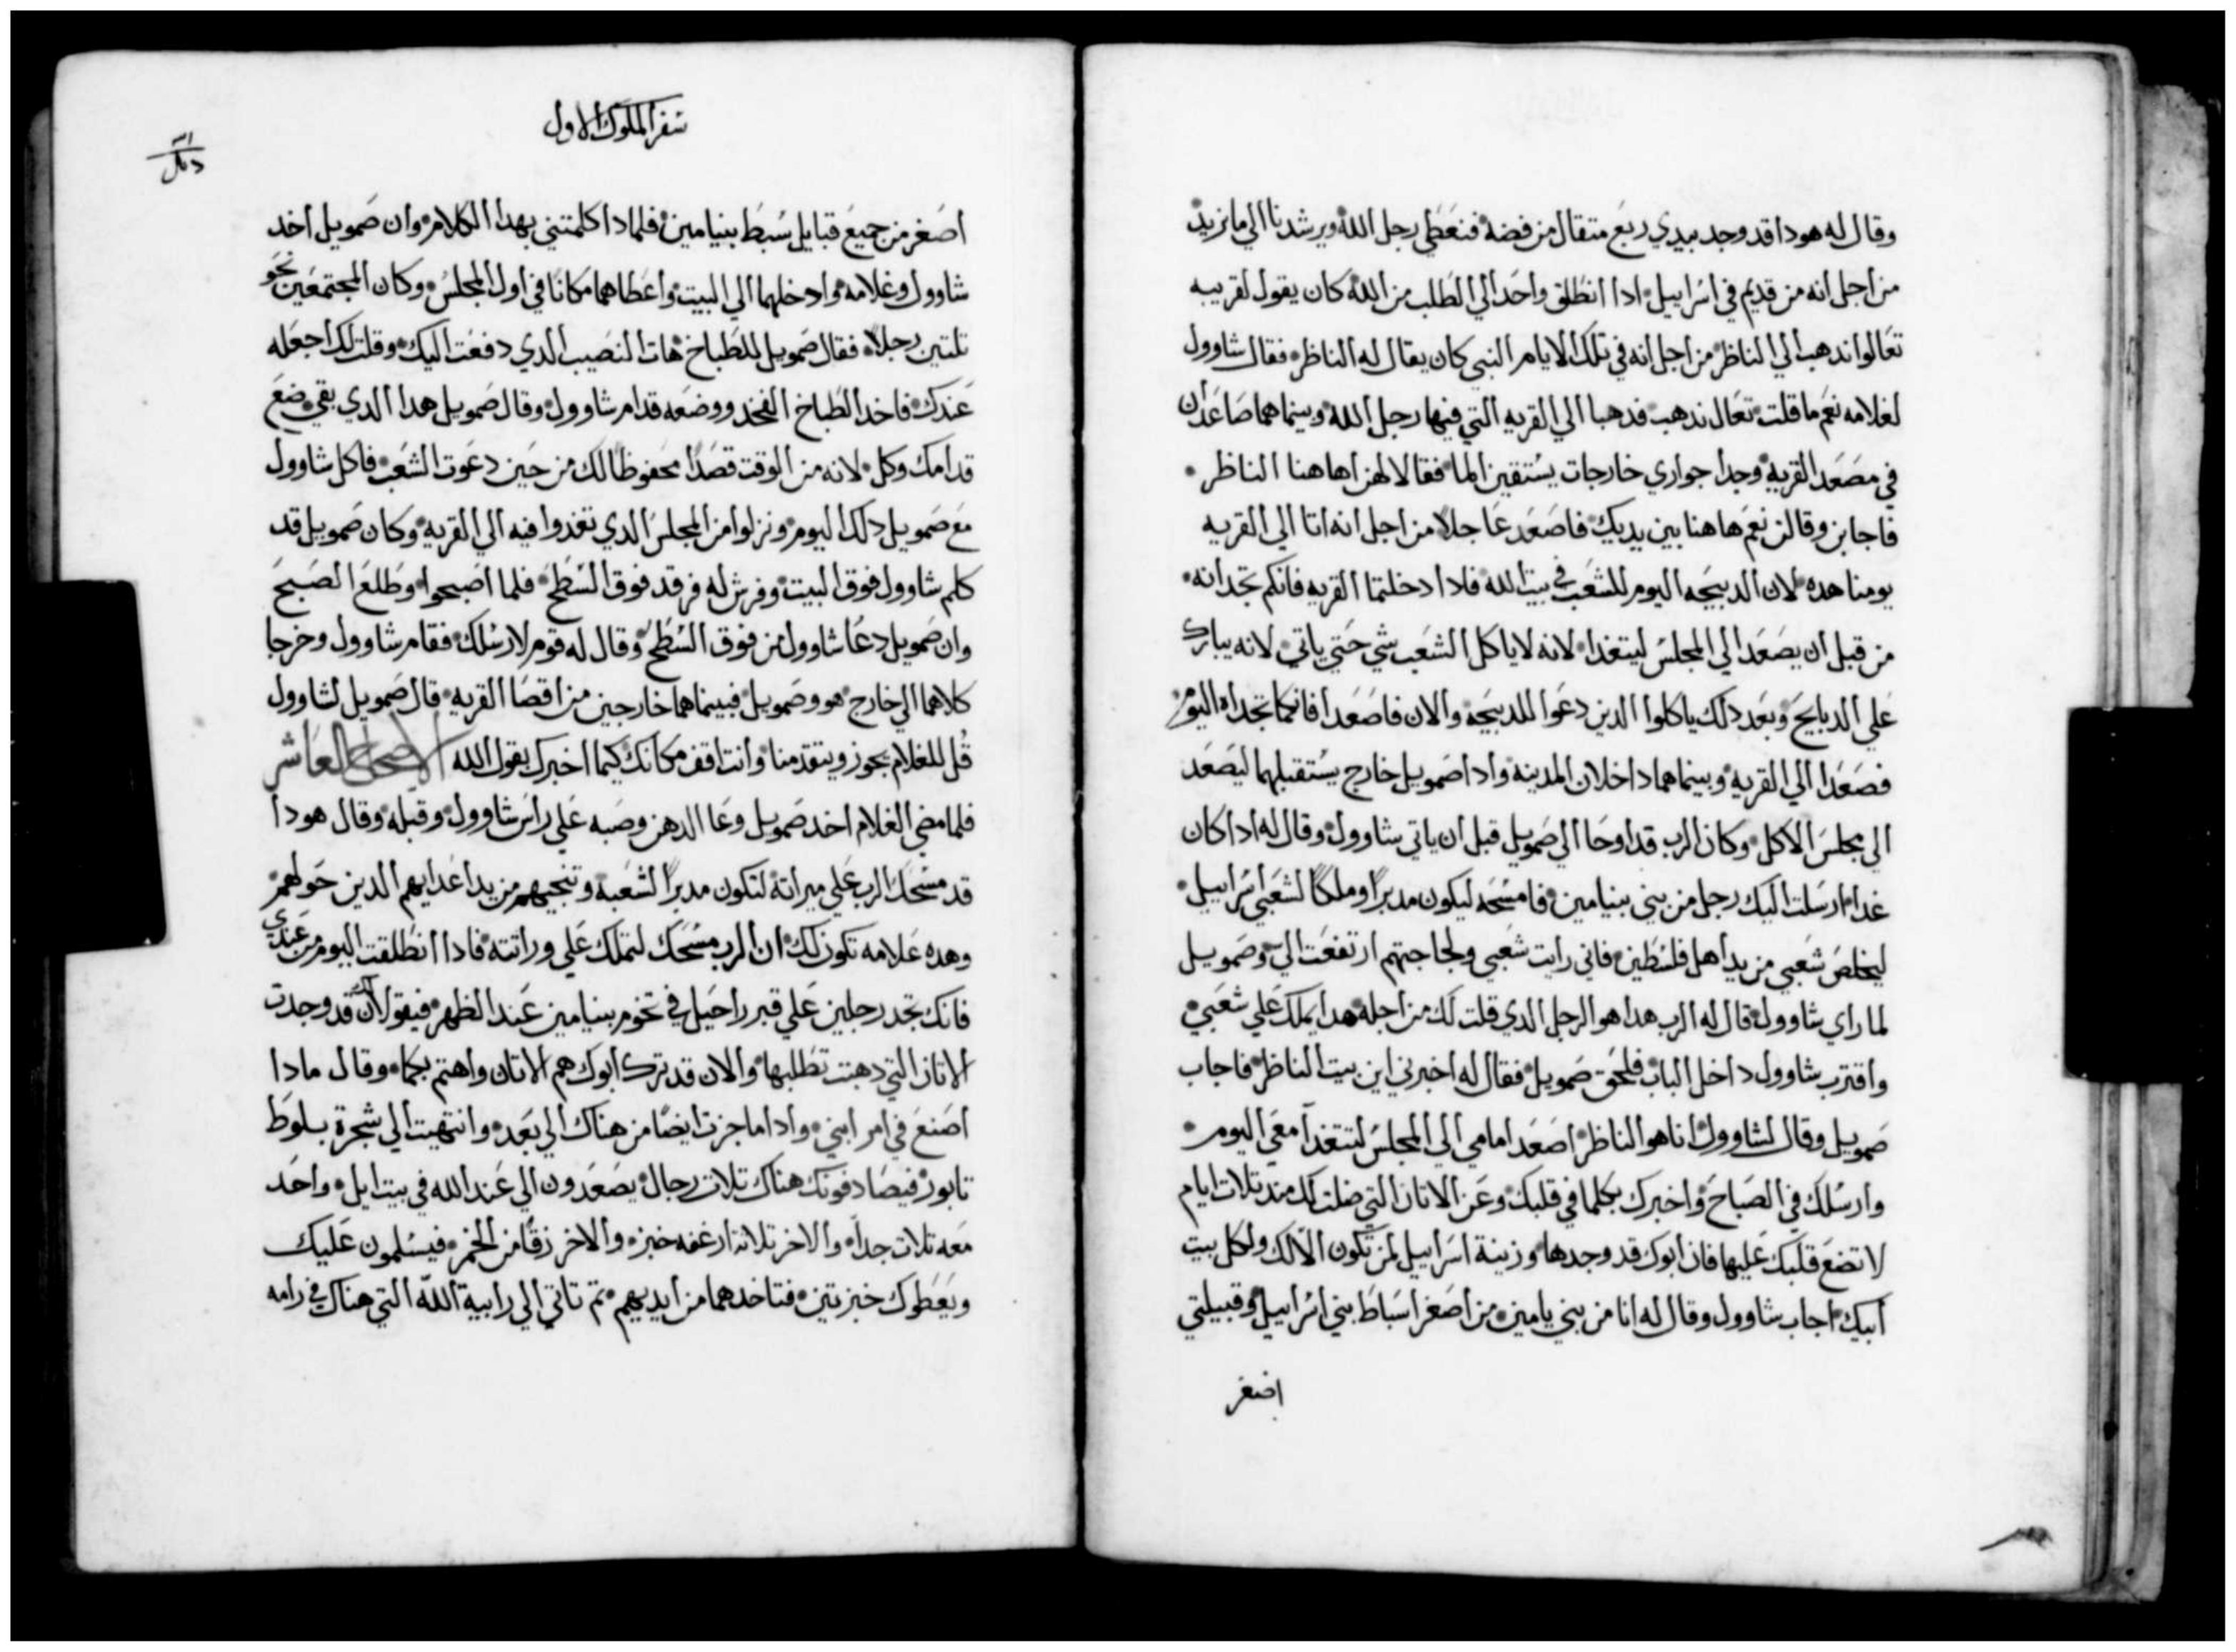 وقال له هودا قد وجد بيدي ربع متقال من فضه فنعطي رجل الله ويرشدنا الي ما نريد
من اجل انه من قديم في اسراييل ادا انطلق واحد الي الطلب من الله كان يقول لقريبه
تعالوا ندهب الي الناظر من اجل انه في تلك الايام النبي كان يقال له الناظر فقال شاوول
لغلامه نعم ما قلت تعال ندهب فدهبا الي القريه التي فيها رجل الله وبينما هما صاعدان
في مصعد القريه وجدا جواري خارجات يستقين الما فقالا لهن اهاهنا الناظر
فاجابن وقالن نعم هاهنا بين يديك فاصعد عاجلا من اجل انه اتا الي القريه
يومنا هده لان الدبيحه اليوم للشعب في بيت الله فادا دخلتما القريه فانكم تجدانه
من قبل ان يصعد الي المجلس ليتغدا لانه لا ياكل الشعب شي حتي ياتي لانه يبارك
علي الدبايح وبعد دلك ياكلوا الدين دعوا للدبيحه والان فاصعدا فانكما تجداه اليوم
فصعدا الي القريه وبينما هما داخلان المدينه وادا صمويل خارج يستقبلهما ليصعد
الي مجلس الاكل وكان الرب قد اوحا الي صمويل قبل ان ياتي شاوول وقال له ادا كان
غدا ارسلت اليك رجل من بني بنيامين فامسحه ليكون مدبرا وملكا لشعبي اسراييل
ليخلص شعبي من يد اهل فلسطين فاني رايت شعبي ولجاجتهم ارتفعت الي وصمويل
لما راي شاوول قال له الرب هدا هو الرجل الدي قلت لك من اجله هدا يملك علي شعبي
واقترب شاوول داخل الباب فلحق صمويل فقال له اخبرني اين بيت الناظر فاجاب
صمويل وقال لشاوول انا هو الناظر اصعد امامي الي المجلس لتتغدا معي اليوم
وارسلك في الصباح واخبرك بكلما في قلبك وعن الاتان التي ضلت لك مند تلات ايام
لا تضع قلبك عليها فان ابوك قد وجدها وزينة اسراييل لمن تكون الا لك ولكل بيت
ابيك اجاب شاوول وقال له انا من بني يامين من اصغر اسباط بني اسراييل وقبيلتي
اصغر
سفر الملوك الاول
اصغر من جميع قبايل سبط بنيامين فلمادا كلمتني بهدا الكلام وان صمويل اخد
شاوول وغلامه وادخلهما الي البيت واعطاهما مكانا في اول المجلس وكان المجتمعين نحو
تلتين رجلا فقال صمويل للطباخ هات النصيب الدي دفعت اليك وقلت لك اجعله
عندك فاخد الطباخ الفخد ووضعه قدام شاوول وقال صمويل هدا الدي بقي ضع
قدامك وكل لانه من الوقت قصدا محفوظا لك من حين دعوت الشعب فاكل شاوول
مع صمويل دلك اليوم ونزلوا من المجلس الدي تغدوا فيه الي القريه وكان صمويل قد
كلم شاوول فوق البيت وفرش له فرقد فوق السطح فلما اصبحوا وطلع الصبح
وان صمويل دعا شاوول من فوق السطح وقال له قوم لارسلك فقام شاوول وخرجا
كلاهما الي خارج هو وصمويل فبينما هما خارجين من اقصا القريه قال صمويل لشاوول
قل للغلام يجوز ويتقدمنا وانت اقف مكانك كيما اخبرك بقول الله الاصحاح العاشر
فلما مضي الغلام اخد صمويل وعا الدهن وصبه علي راس شاوول وقبله وقال هودا
قد مسحك الرب علي ميراته لتكون مدبرا لشعبه وتنجيهم من يد اعدايهم الدين حولهم
وهده علامه تكون لك ان الرب مسحك لتملك علي وراتته فادا انطلقت اليوم من عندي
فانك تجد رجلين علي قبر راحيل في تخوم بنيامين عند الظهر فيقولا لك قد وجدت
الاتان التي دهبت تطلبها والان قد ترك ابوك هم الاتان واهتم بكما وقال مادا
اصنع في امر ابني وادا ما جزت ايضا من هناك الي بعد وانتهيت الي شجرة بلوط
تابور فيصادفونك هناك تلات رجال يصعدون الي عند الله في بيت ايل واحد
معه تلات جدا والاخر تلاتة ارغفه خبز والاخر زقا من الخمر فيسلمون عليك
ويعطوك خبزتين فتاخدهما من ايديهم تم تاتي الي رابية الله التي هناك في رامه